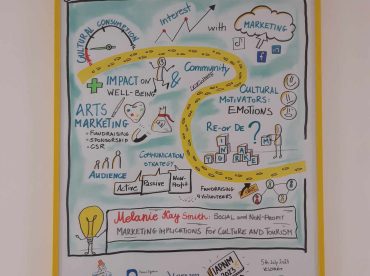 CULTURAL CONSUMPTION
Interest
with
MARKETING
IMPACT ON
WELL-BEING
&
Community
ARTS
MARKETING
FUNDRAISING
SPONSORSHIP
CSR
CULTURAL
MOTIVATORS:
EMOTIONS
Re-or De ?
AUDIENCE
COMMUNICATION
STRATEGY
Active
Passive
Non-
Profit
FUNDRAISING
VOLUNTEERS
Melanie Kay Smith: SOCIAL AND NON-PROFIT
MARKETING IMPLICATIONS FOR CULTURE AND TOURISM
IAPNM
2023
5th July 2023